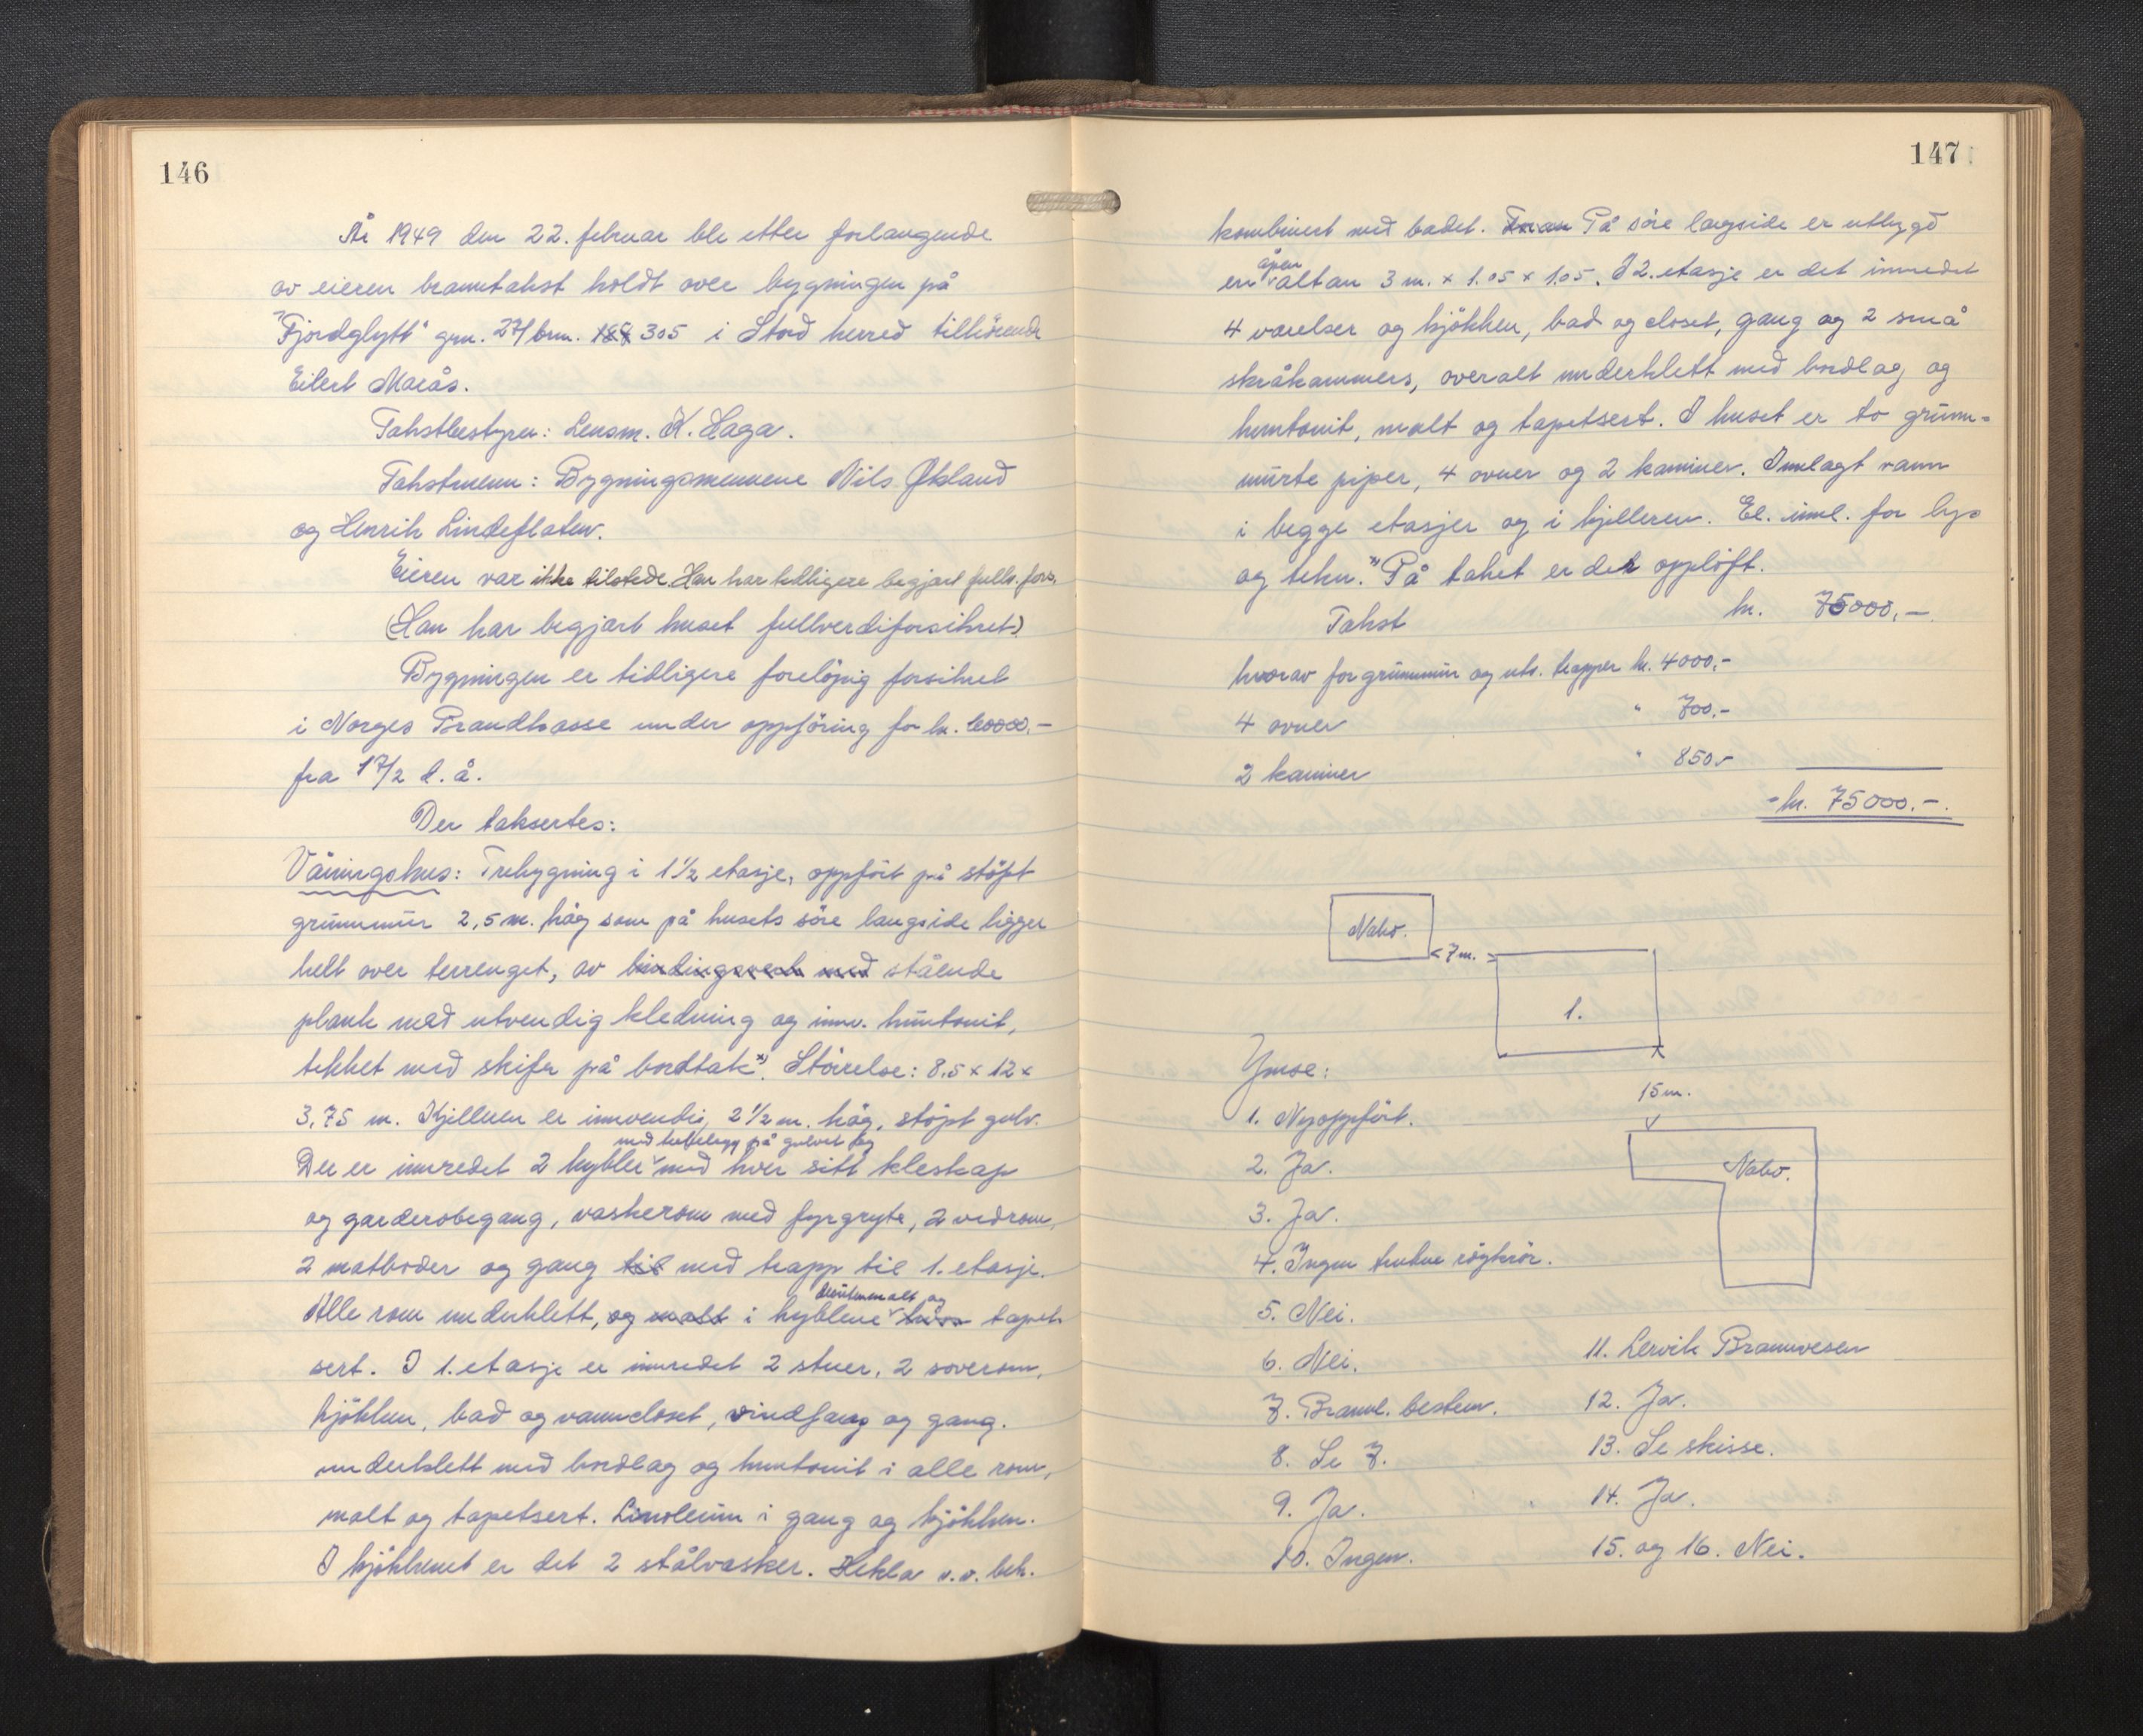 146
År 1949 den 22. februar ble etter forlangende
av eieren branntakst holdt over bygningen på
"Fjordglytt" gnr. 27/ brn. 188 305 i Stord herred tilhörende
Eilert Maraas.
Takstbestyrer: Lensm. K. Haga.
Takstmenn: Bygningsmennene Nils Økland
og Henrik Lindeflaten.
Eieren var ikke tilstede. Han har tidligere begjært fullv. fors.
(Han har begjært huset fullverdiforsikret)
Bygningen er tidligere foreløpig forsikret
i Norges Brandkasse under oppföring for kr. 60000,-
fra 17/2 d. å.
Der taksertes:
Våningshus: Trebygning i 1 1/2 etasje, oppfört på stöpt
grunnmur 2,5 m. høg som på husets söre langside ligger
helt over terrenget, av bindingsverk med stående
plank med utvendig kledning og innv. huntonit,
tekket med skifer på bordtak x). Störrelse: 8.5 x 12 x
3,75 m. Kjelleren er innvendig 2 1/2 m. høg, støpt golv.
med på golvet og
Der er innredet 2 hybler med hver sitt kleskap
og garderobegang, vaskerom med fyrgryte, 2 vedrom,
2 matboder og gang til med trapp til 1. etasje.
og
Alle rom underklett, og malt i hyblene tapet-
sert. I 1. etasje er innredet 2 stuer, 2 soverom,
kjökken, bad og vanncloset, vindfang og gang.
underklett med bordlag og huntonit i alle rom,
malt og tapetsert. Linoleum i gang og kjökken.
I kjökkenet er det 2 stålvasker. Hekla v.v. beh.
147
kombinert med badet. På söre langside er utbygd
åpen
en altan 3 m. x 1.05 x 1.05. I 2. etasje er det innredet
4 værelser og kjökken, bad og closet, gang og 2 små
skråkammers, overalt underklett med bordlag og
huntonit, malt og tapetsert. I huset er to grunn-
murte piper, 4 ovner og 2 kaminer. Innlagt vann
i begge etasjer og i kjelleren. El. innl. for lys
og tekn. x) På taket er det oppløft.
Takst kr. 75000,-
hvorav for grunnmur og utv. trapper kr. 4000,-
4 ovner " 700,-
2 kaminer " 850,-
- kr. 75000.-.
Nabo.
<7 m. >
1.
15 m.
Nabo.
Ymse:
1. Nyoppfört.
2. Ja.
3. Ja.
4. Ingen trekne röykrör.
5. Nei.
6. Nei.
7. Brannl. bestem.
8. Se 7.
9. Ja.
10. Ingen.
11. Lervik Brannvesen
12. Ja.
13. Se skisse.
14. Ja.
15. og 16. Nei.